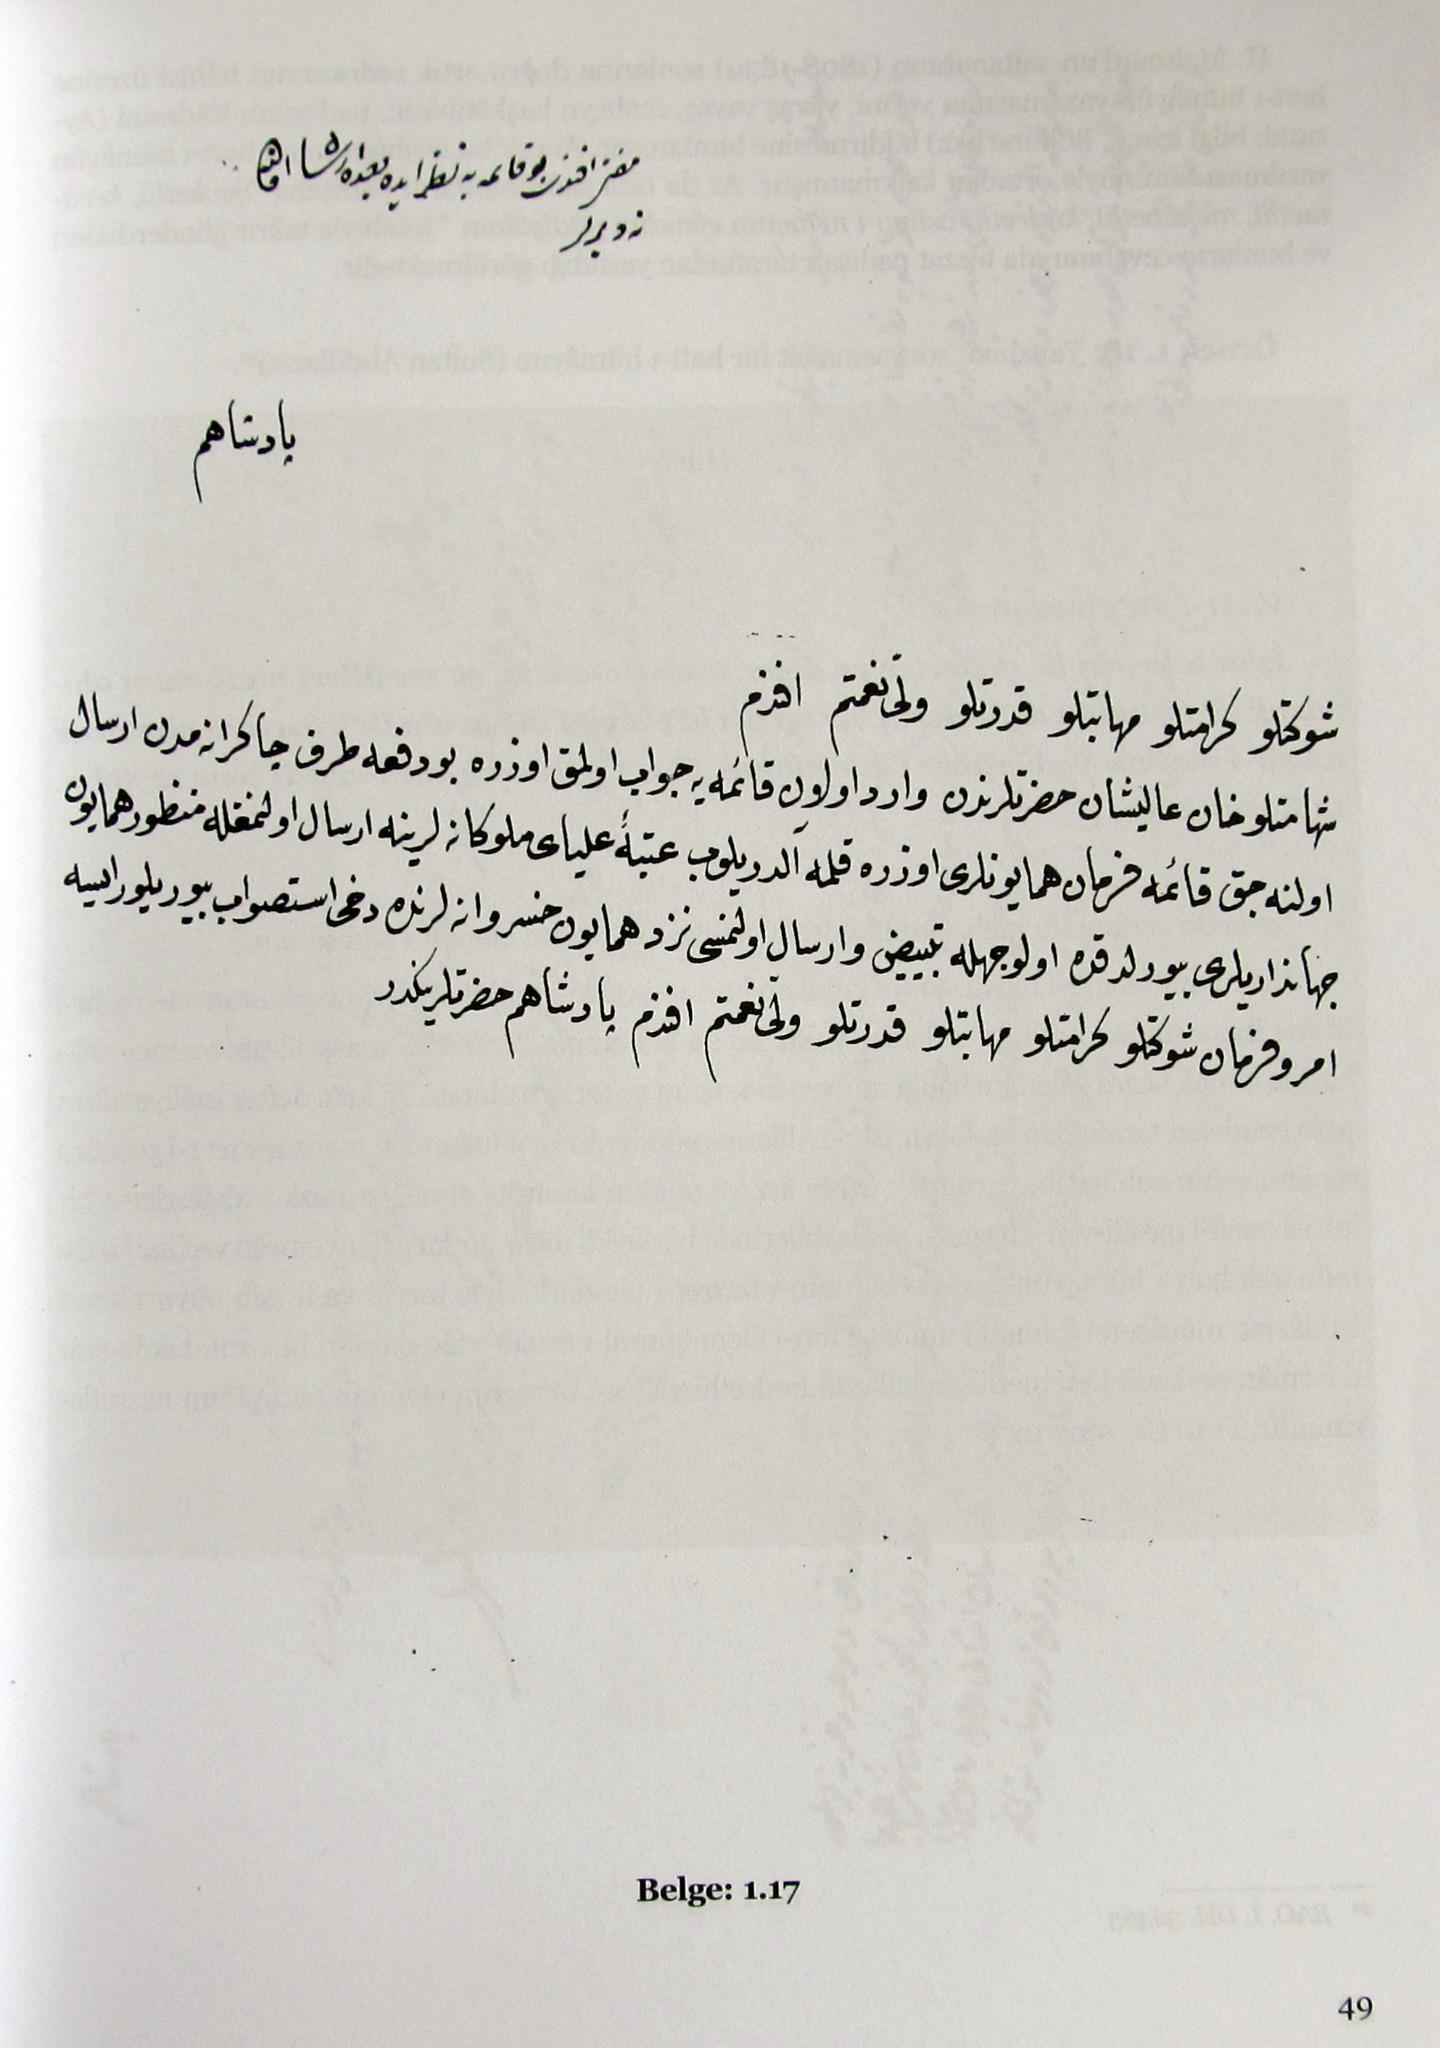 مفتی افندی بو قائمه یه نظر ایده بعده
نه دیرلر
پادشاهم
شوکتلو کرامتلو مهابتلو قدرتلو ولی نعمتم افندم
شهامتلو خان عالیشان حضرتلرندن وارد اولان قائمه یه جواب اولمق اوزره بو دفعه طرف چاکرانه مدن ارسال
اولنه جق قائمه فرمان همایونلری اوزره قلمه آلدریلوب عتبهٔ علیای ملوکانه لرینه ارسال اولنمغله منظور همایون
جهانداریلری بیورلدقده اولوجهله تبییض و ارسال اولنمسی نزد همایون خسروانه لرنده دخی استصواب بیوریلور ایسه
امر و فرمان شوکتلو کرامتلو مهابتلو قدرتلو ولی نعمتم افندم پادشاهم حضرتلرینکدر
Belge: 1.17
49